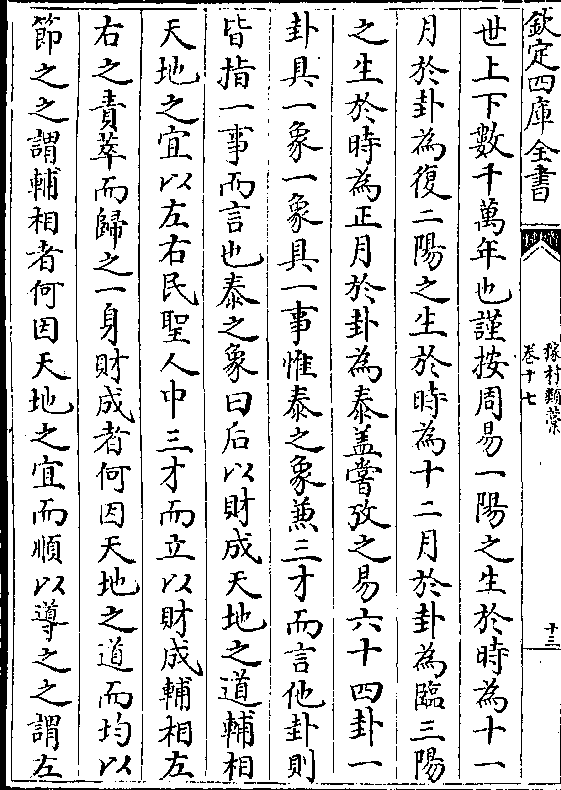 欽定四庫全書
稼村類藁
卷十七
十三
世上下數千萬年也謹按周易一陽之生於時為十一
月於卦為復二陽之生於時為十二月於卦為臨三陽
之生於時為正月於卦為泰盖嘗攷之易六十四卦一
卦具一象一象具一事惟泰之象兼三才而言他卦則
皆指一事而言也泰之象曰后以財成天地之道輔相
天地之宜以左右民聖人中三才而立以財成輔相左
右之責萃而歸之一身財成者何因天地之道而均以
節之之謂輔相者何因天地之宜而順以導之之謂左